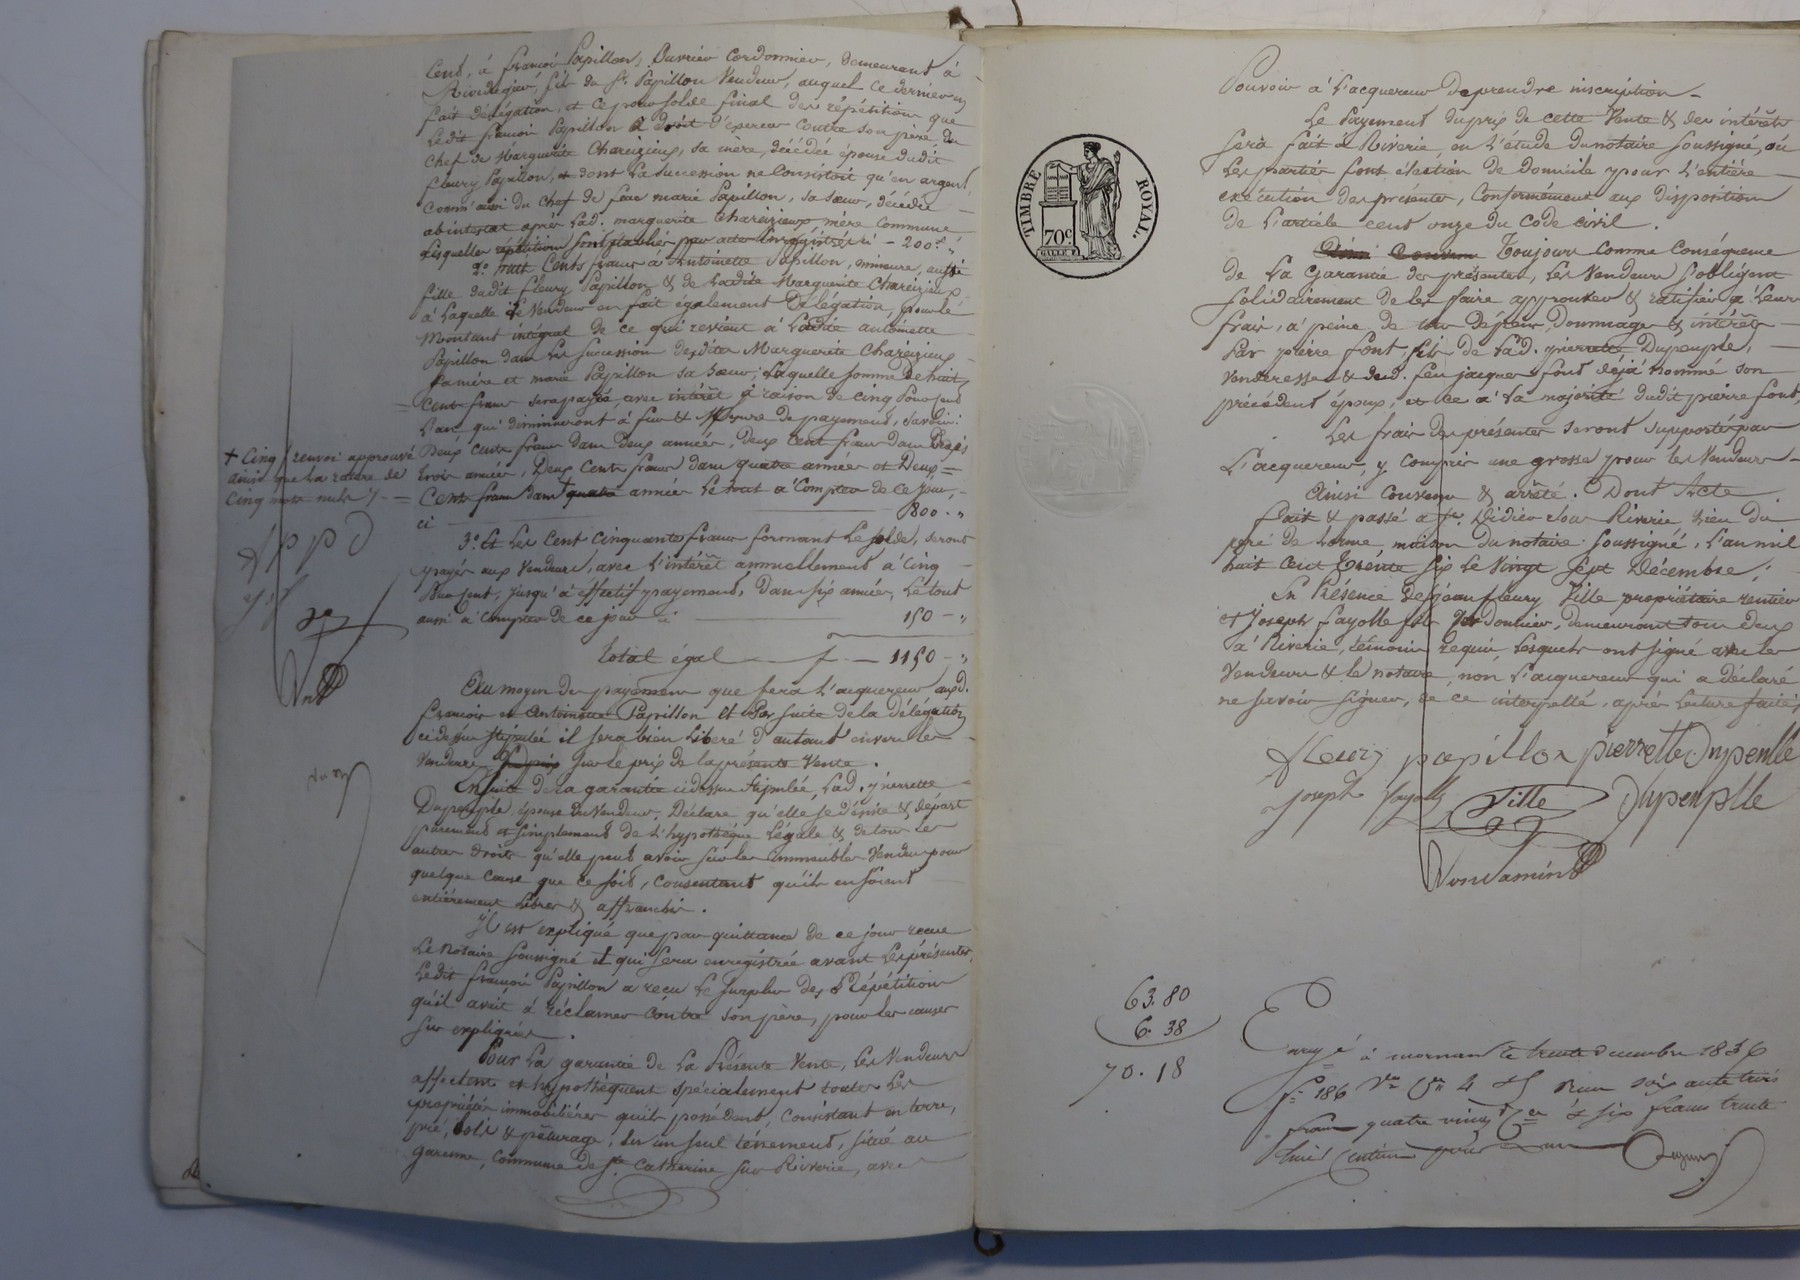 Cent, à françois Papillon, Ouvrier Cordonnier, demeurant à
fils du Sr. Papillon Vendeur, auquel ce dernier en
fait délégation, et ce pour solde final des répétitions que
ledit françois Papillon a droit d'exercer contre son père, du
chef de Marguerite Chareizieux, sa mère, décédée épouse dudit
fleury Papillon, et dont la succession ne Consistoit qu'en argent,
comm'aussi du chef de feue marie Papillon, sa sœur, décédée
abintestat après lad. marguerite Chareizieux mère commune
lesquelles répétitions sont établies par acte enregistré ci - 200 f. "
2° huit Cents francs à Antoinette Papillon, mineure, aussi
fille dudit fleury Papillon & de ladite Marguerite Chareizieux
à laquelle le Vendeur en fait également Délégation, pour le
Montant intégral de ce qui revient à ladite antoinette
Papillon dans les succession desdites Marguerite Chareizieux
sa mère et marie Papillon sa sœur; laquelle somme de huit
Cent francs sera payée, avec intérêt à raison de cinq pour cent
l'an qui diminueront à fur & Mesure de payement, savoir:
Deux cents francs dans Deux années, deux cent francs dans
trois années, Deux Cents francs dans quatre années et Deux =
Cents francs dans + quatre années le tout à Compter de ce jour, -
ci 800 - "
+ Cinq / renvoi approuvé
ainsi que la rature de
Cinq mots nuls
3° Et les Cent Cinquante francs formant le solde, seront
payés aux Vendeurs, avec l'intérêt annuellement à Cinq
Pour Cent, jusqu'à effectif payement, Dans six années, le tout
aussi à compter de ce jour ci 150 - "
total égal f. - 1150 - "
Au moyen des payemens que fera l'acquereur auxd.
françois et Antoinette Papillon Et Par suite de la délégation
ci dessus stipulée il sera bien libéré d'autant envers les
Vendeurs sur le prix de la présente Vente.
Ensuite de la garantie ci dessus stipulée, lad. pierrette
Dupeuple épouse du Vendeur, Déclare qu'elle se désiste & départ
purement et simplement de l'hypothèque légale & de tous les
autres droits qu'elle peut avoir sur les immeubles Vendus pour
quelque cause que ce soit, consentant qu'ils en soient
entièrement libres & affranchis.
Il est expliqué que par quittance de ce jour reçue
le notaire soussigné et qui sera enregistrée avant les présentes,
ledit françois Papillon a reçu le surplus des Répétitions
qu'il avait à réclamer contre son père, pour les causes
sus expliquées.
Pour la garantie de la Présente Vente, les Vendeurs
affectent et hypothèquent spécialement toutes les
propriétés immobilières qu'ils possèdent, consistant en terre,
pré, bois & pâturage, en un seul ténement, situé au
commune de Ste. Catherine sur Riverie, avec
TIMBRE ROYAL.
70c
Pouvoir à l'acquereur de prendre inscription -
Le Payement du prix de cette Vente & des intérêts
sera fait à Riverie en l'étude du notaire soussigné, où
les parties font élection de domicile pour l'entière
exécution des présentes, Conformément aux disposition
de l'article cent onze du code civil.
Toujours comme Conséquence
de la Garantie des présentes, les Vendeurs s'obligent
solidairement de les faire approuver & ratifier à leurs
frais, à peine de tous dépens, Dommages & intérêts
Par pierre font, fils de lad. pierrette Dupeuple,
Venderesse & dud. feu jacques font déjà nommé son
précédent époux, et ce à la majorité dudit pierre font,
Les frais des présentes seront supportés par
l'acquereur, y compris une grosse pour les Vendeurs -
Ainsi Convenu & arrêté. Dont Acte.
fait & passé à st. Didier sous Riverie lieu du
pré de Lorme maison du notaire soussigné, l'an mil
huit cent trente six le Vingt sept Décembre;
En Présence de jean fleury Ville propriétaire rentier
et Joseph fayolle fils Cordonnier, demeurant tous deux
à Riverie, témoins requis, lesquels ont signé avec les
Vendeurs & le notaire, non l'acquereur qui a déclaré
ne savoir signer, de ce interpellé, après lecture faite,
fleury papillon pierrette Dupeuple
joseph fayolle Ville Dupeuple
63. 80
6. 38
70. 18
Enregé à mornant le trente decembre 1836
fo 186 Vo Reçu soixante trois
francs quatre vingt & six francs trente
huit centimes pour